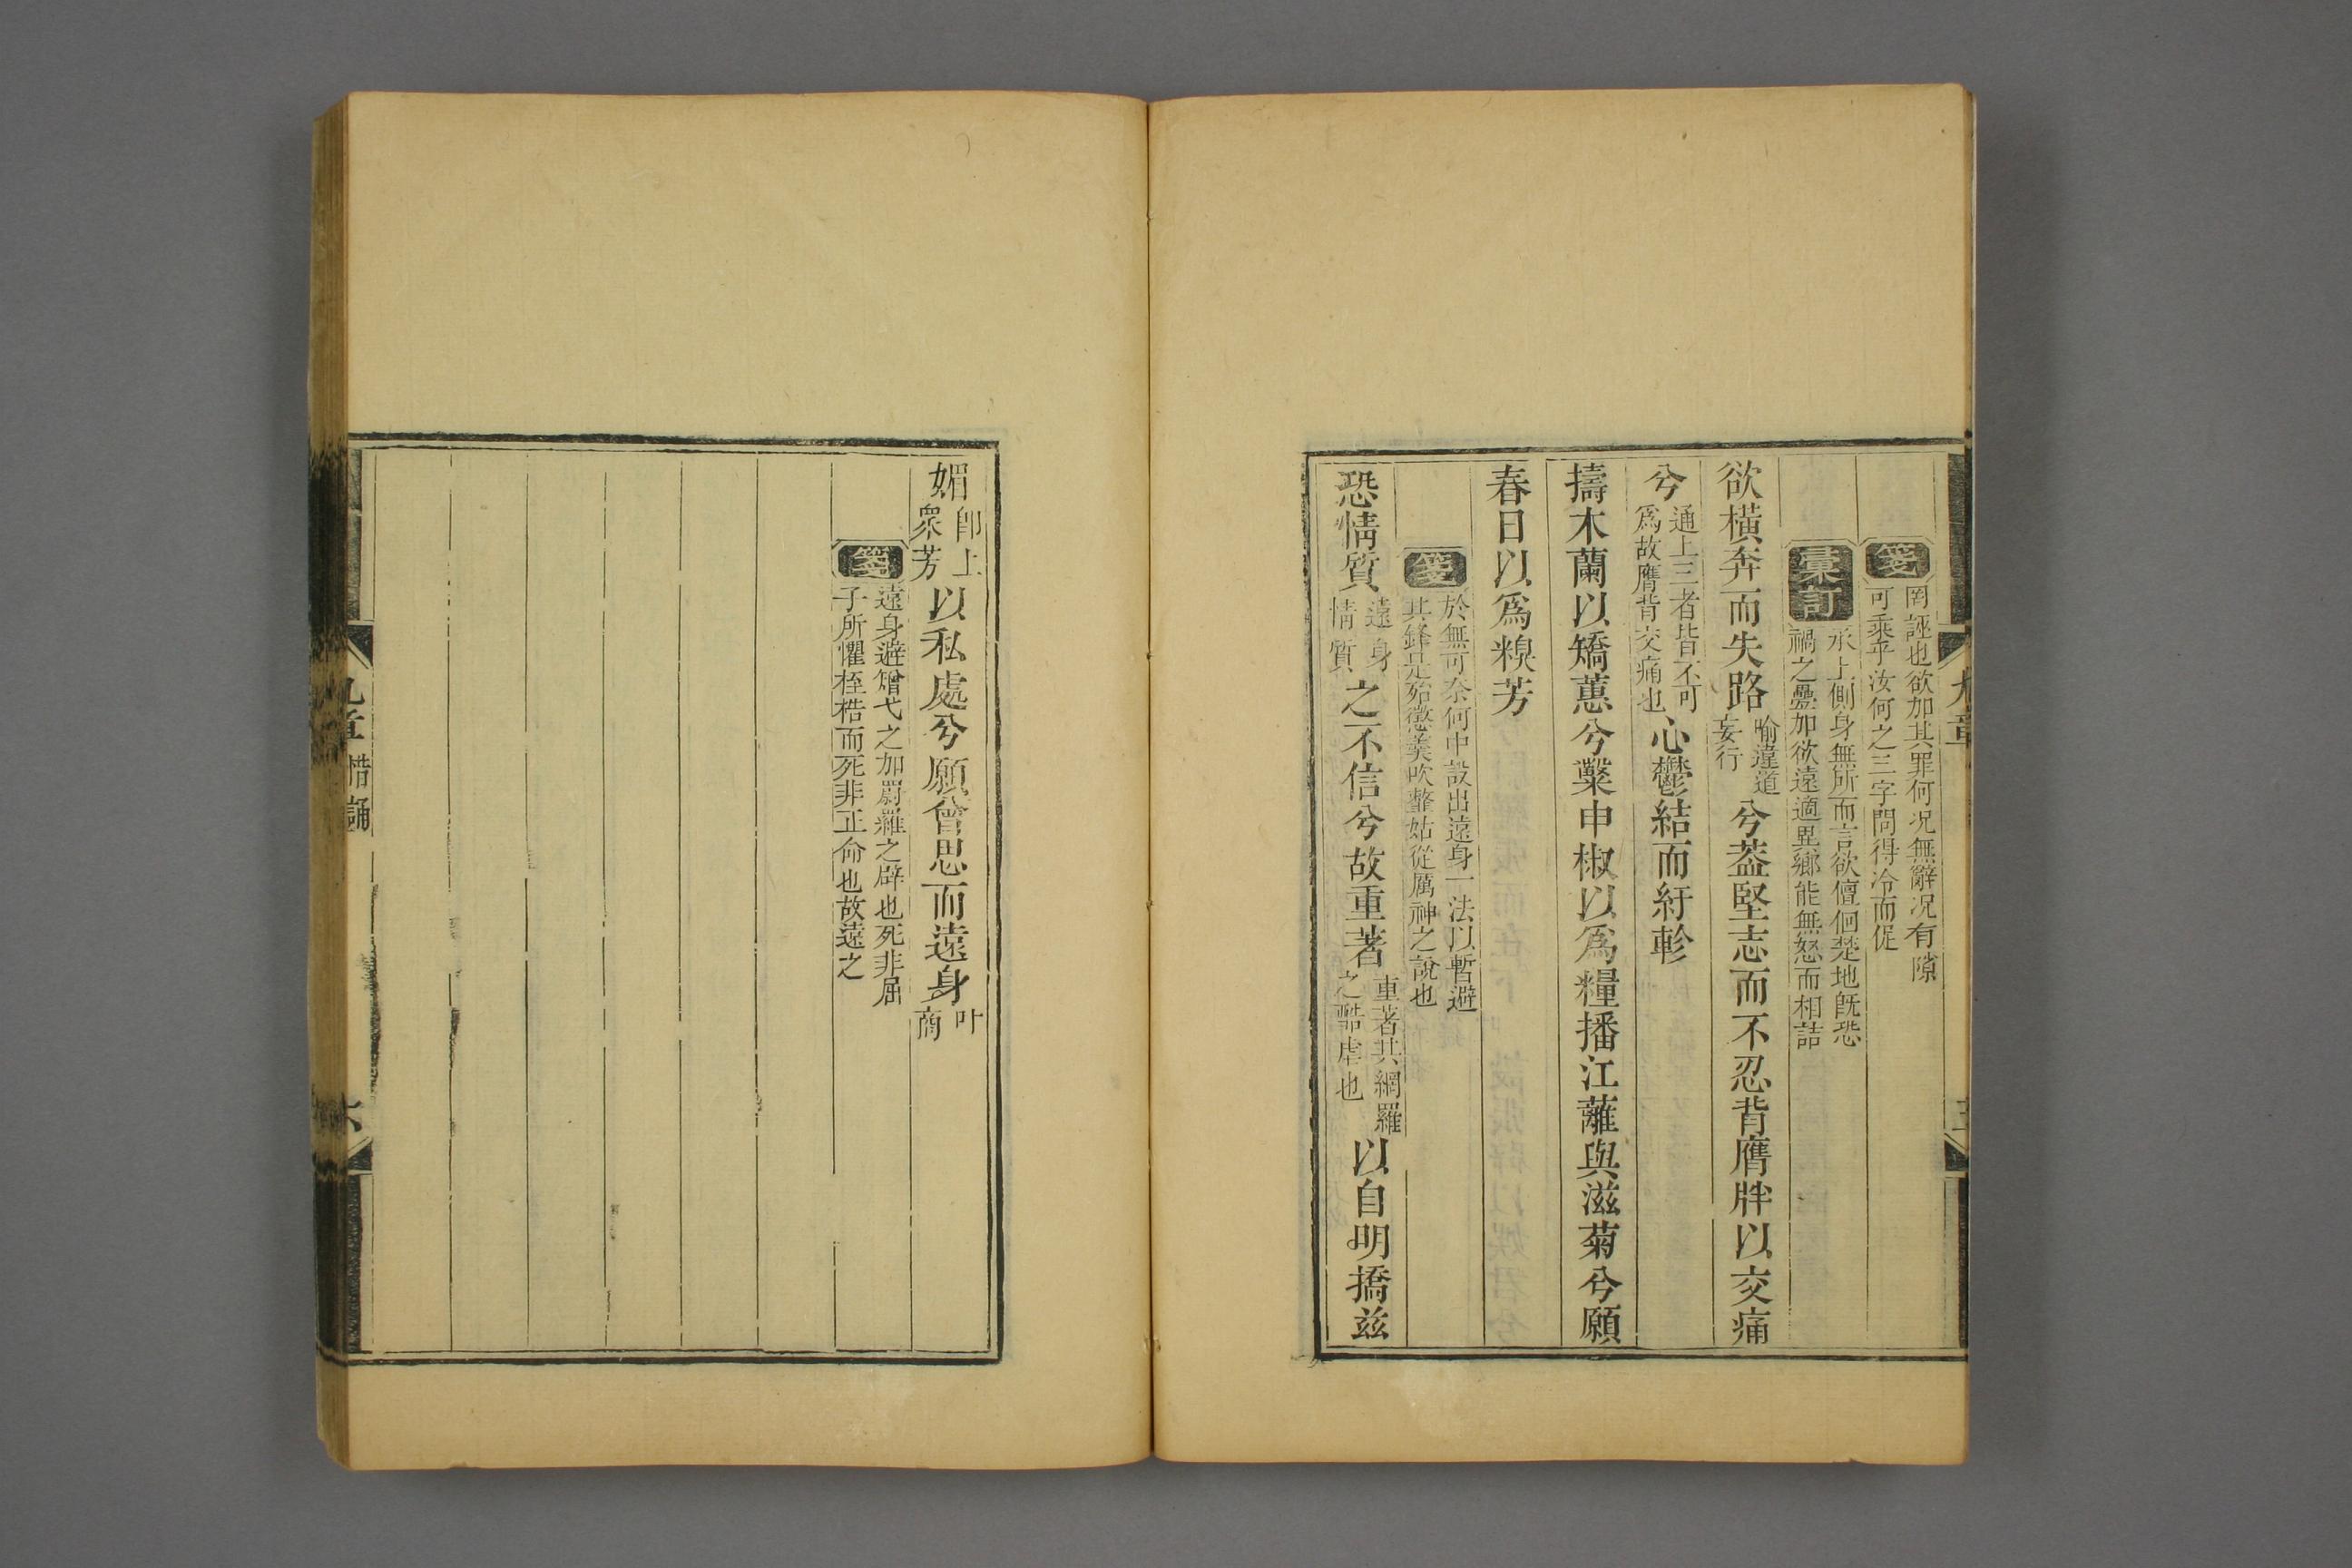 箋 罔誣也欲加其罪何况無辭况有隙
可乘乎汝何之三字問得冷而促
彙訂 承上側身無所而言欲儃佪楚地旣恐
禍之疊加欲遠適異鄉能無怒而相詰
欲橫奔而失路 喻違道妄行 兮葢堅志而不忍背膺牉以交痛
兮 通上三者皆不可爲故膺背交痛也 心鬱結而紆軫
擣木蘭以矯蕙兮糳申椒以爲糧播江蘺與滋菊兮願
春日以爲糗芳
箋 於無可奈何中設出遠身一法以暫避
其鋒是殆懲羹吹虀姑從厲神之說也
恐情質 遠身情質 之不信兮故重著 重著其網羅之酷虐也 以自明撟茲
媚 卽上衆芳 以私處兮願曾思而遠身 叶商
箋 遠身避矰弋之加罻羅之辟也死非屈
子所懼桎梏而死非正命也故遠之
九章 惜誦 六